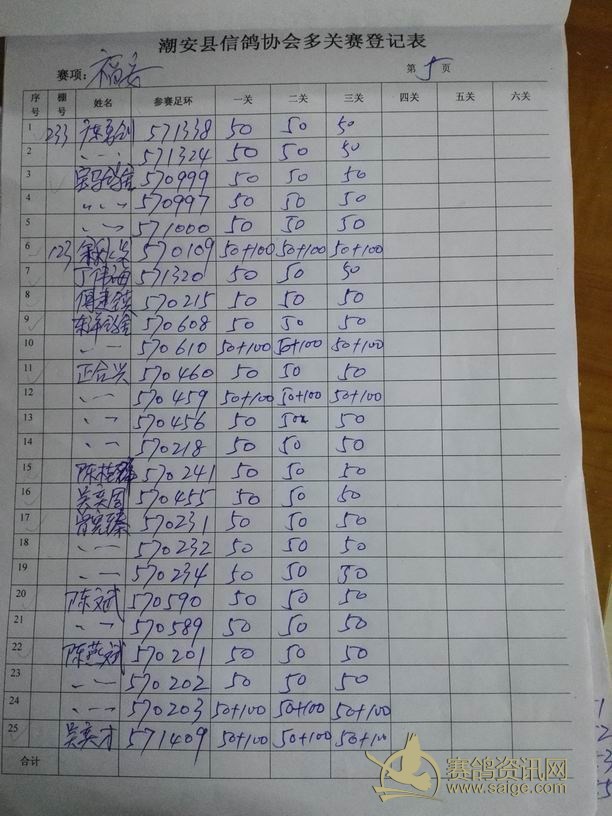 潮安县信鸽协会多关赛登记表
赛项: 福安 第5页
序号 棚号 姓名 参赛足环 一关 二关 三关 四关 五关 六关
1 233 571338 50 50 50
2 571324 50 50 50
3 570999 50 50 50
4 570997 50 50 50
5 571000 50 50 50
6 123 570109 50+100 50+100 50+100
7 丁伟海 571320 50 50 50
8 570215 50 50 50
9 570608 50 50 50
10 570610 50+100 50+100 50+100
11 正合兴 570460 50 50 50
12 570459 50+100 50+100 50+100
13 570456 50 50 50
14 570218 50 50 50
15 570241 50 50 50
16 570455 50 50 50
17 570231 50 50 50
18 570232 50 50 50
19 570234 50 50 50
20 陈文斌 570590 50 50 50
21 570589 50 50 50
22 陈燕斌 570201 50 50 50
23 570202 50 50 50
24 570203 50+100 50+100 50+100
25 吴奕才 571409 50+100 50+100 50+100
合计
赛鸽资讯网
www.saige.com